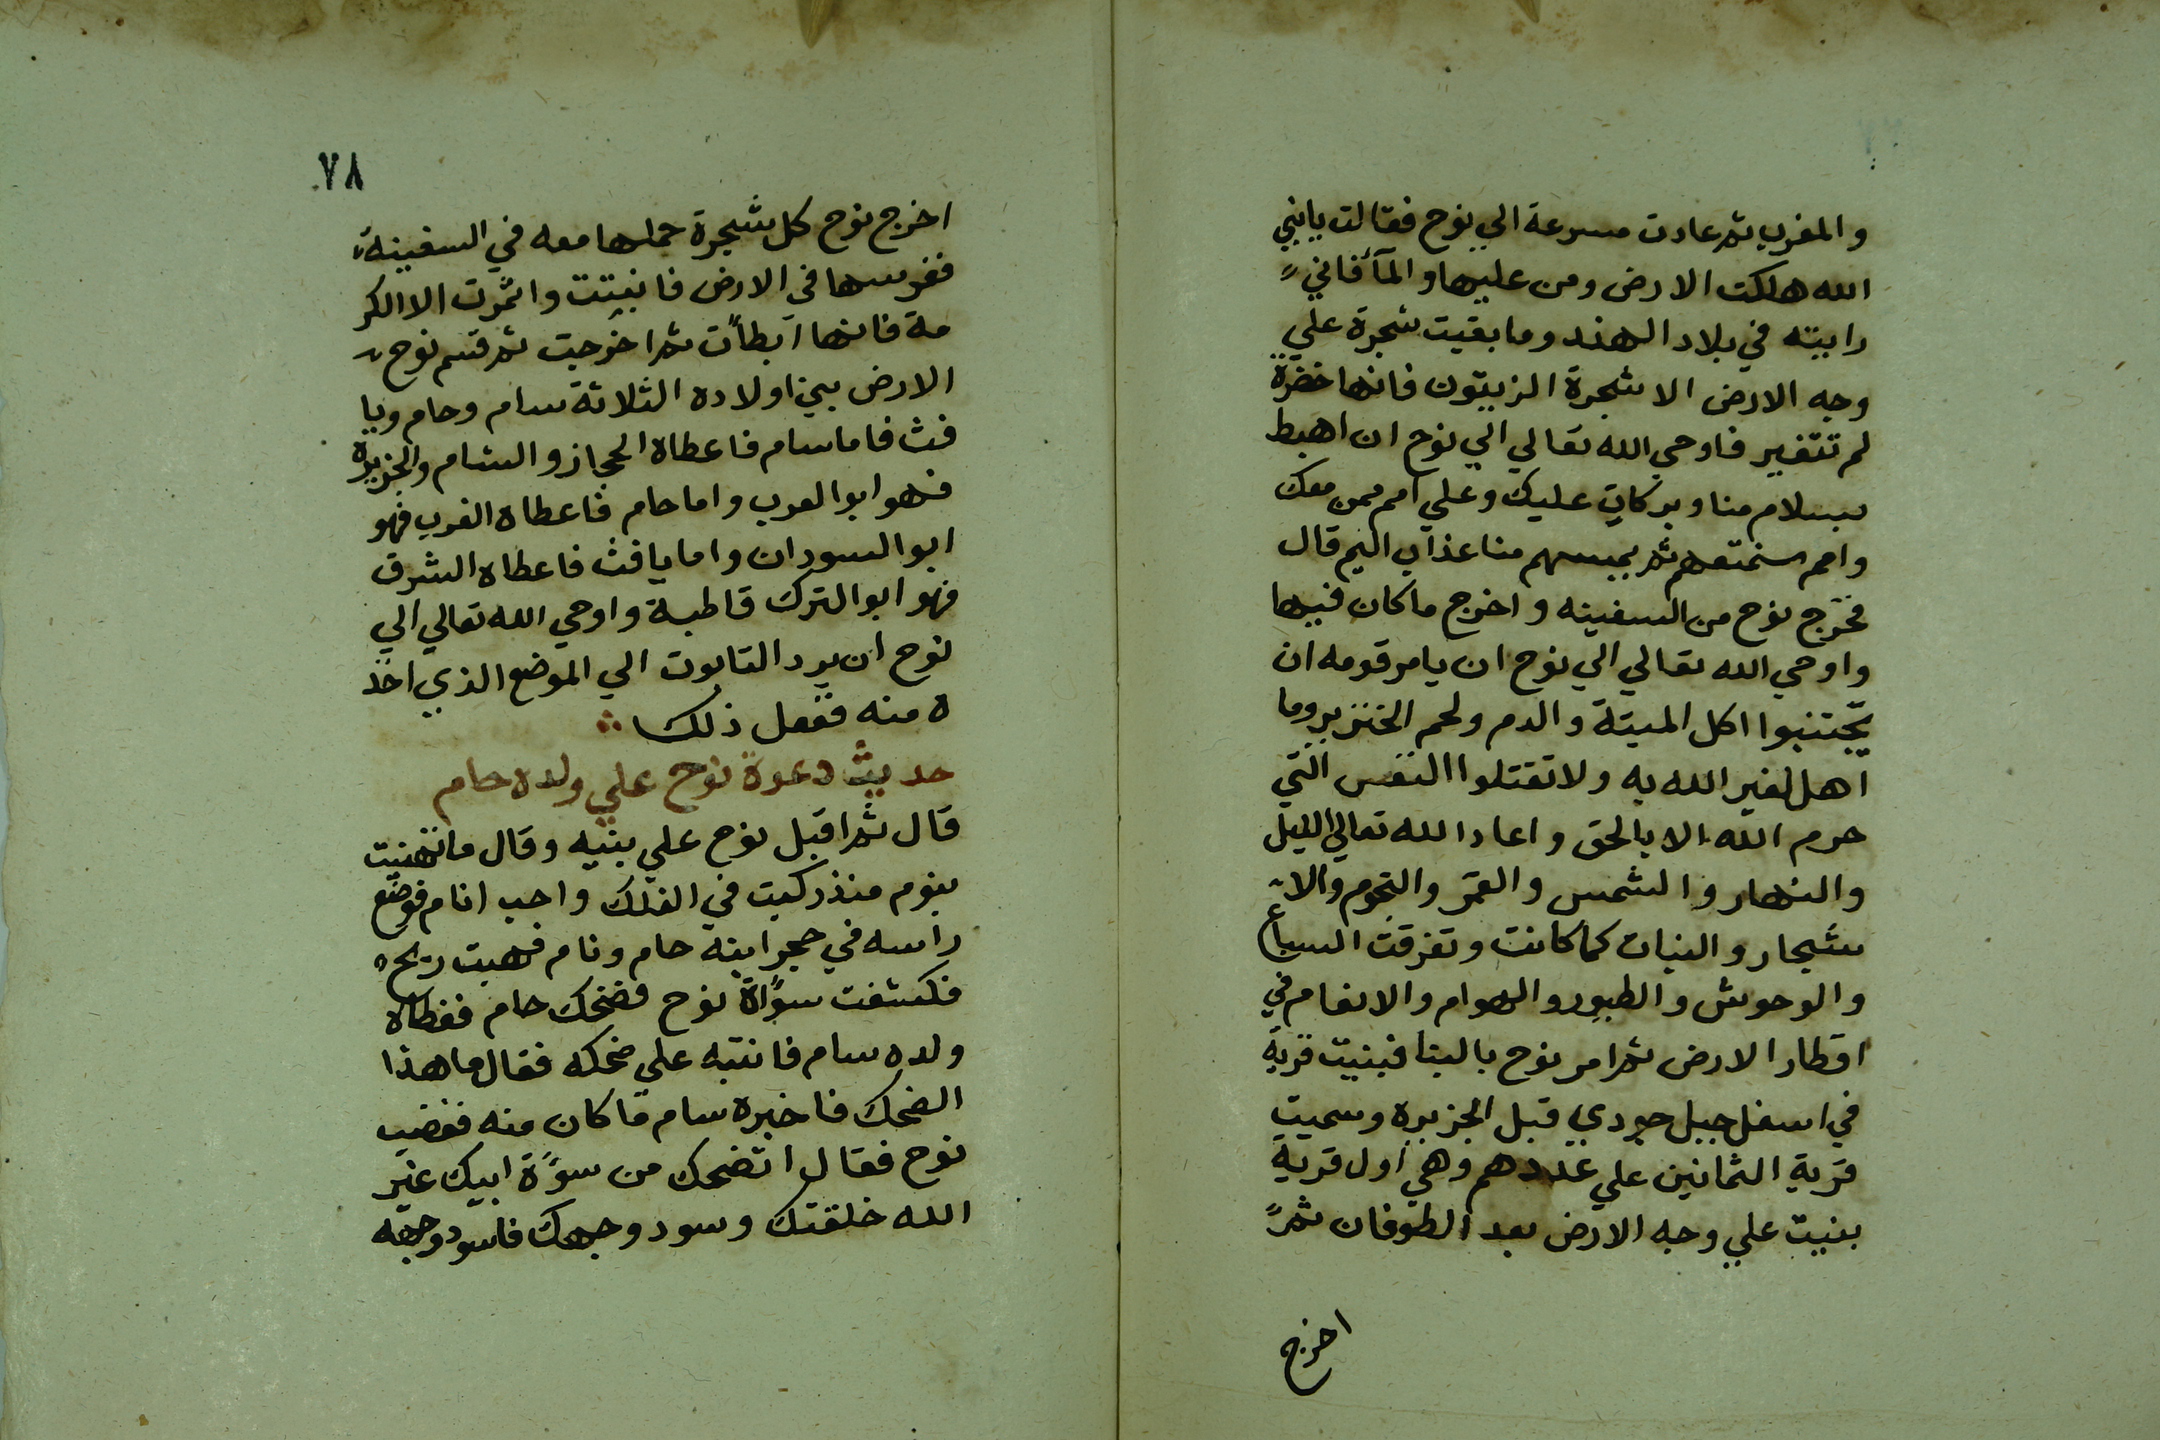 والمغرب ثم عادت مسرعة الي نوح فقالت يا نبي
الله هلكت الارض ومن عليها والمآ فاني
رايته في بلاد الهند وما بقيت شجرة علي
وجه الارض الا شجرة الزيتون فانها خضرة
لم تتغير فاوحي الله تعالي الي نوح ان اهبط
بسلام منا وبركات عليك وعلي امم ممن معك
وامم سنمتعهم ثم يمسهم منا عذاب اليم قال
فخرج نوح من السفينه واخرج ما كان فيها
واوحي الله تعالي الي نوح ان يامر قومه ان
يجتنبوا اكل الميتة والدم ولحم الخنزير وما
اهل لغير الله به ولا تقتلوا النفس التي
حرم الله الا بالحق واعاد الله تعالي الليل
والنهار والشمس والقمر والنجوم والا
شجار والنبات كما كانت وتفرقت السباع
والوحوش والطيور والهوام والانعام في
اقطار الارض ثم امر نوح بالبنا فبنيت قرية
في اسفل جبل جودي قبل الجزيرة وسميت
قرية الثمانين علي عددهم وهي اول قرية
بنيت علي وجه الارض بعد الطوفان ثم
اخرج
٧٨
اخرج نوح كل شجرة حملها معه في السفينة
فغرسها في الارض فانبتت واثمرت الا الكر
مة فانها ابطأت ثم اخرجت ثم قسم نوح
الارض بين اولاده الثلاثة سام وحام ويا
فث فاما سام فاعطاه الحجاز والشام والجزيرة
فهو ابو العرب واما حام فاعطاه الغرب فهو
ابو السودان واما يافث فاعطاه الشرق
فهو ابو الترك قاطبة واوحي الله تعالي الي
نوح ان يرد التابوت الي الموضع الذي اخذ
ه منه ففعل ذلك
حديث دعوة نوح علي ولده حام
قال ثم اقبل نوح علي بنيه وقال ما تهنيت
بنوم منذ ركبت في الفلك واحب انام فوضع
راسه في حجر ابنه حام ونام فهبت ريح
فكشفت سوأة نوح فضحك حام فغطاه
ولده سام فانتبه علي ضحكه فقال ما هذا
الضحك فاخبره سام ما كان منه فغضب
نوح فقال اتضحك من سوءة ابيك غير
الله خلقتك وسود وجهك فاسود وجهه